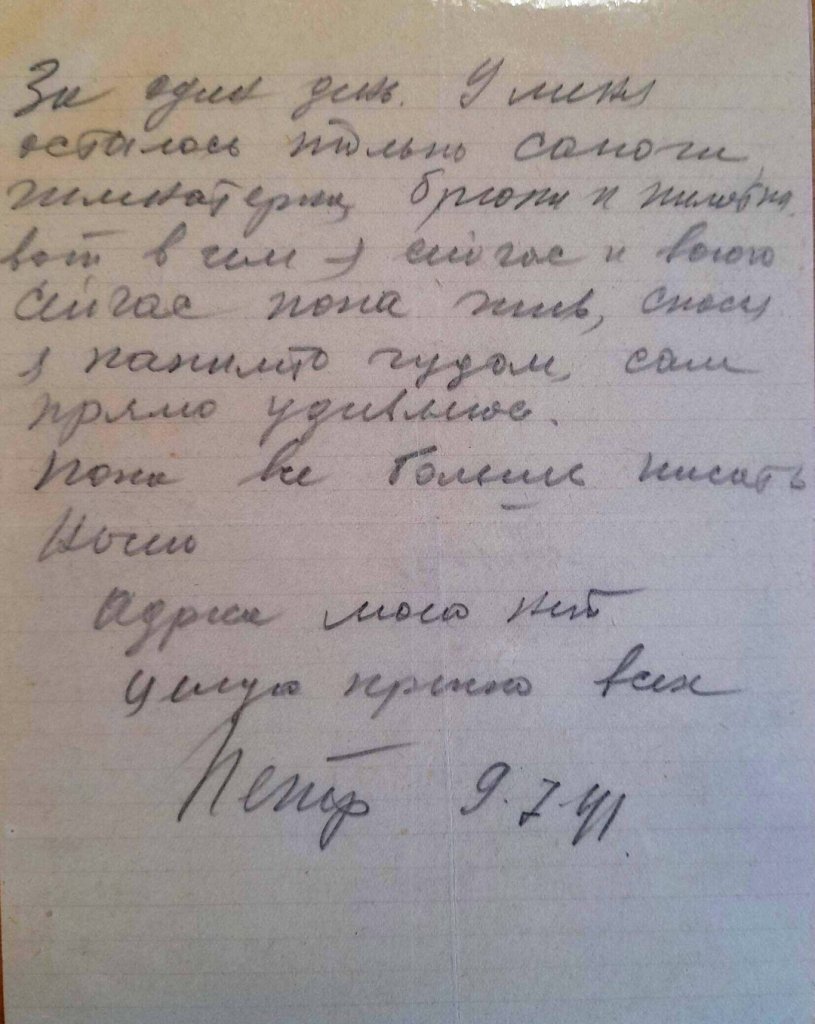 За один день. У меня
осталось только сапоги,
гимнастерка, брюки и пилотка.
вот в чем я сейчас и воюю
Сейчас пока жив, спасся
я каким то чудом, сам
прямо удивляюсь.
Пока все больше писать
кончаю
Адреса моего нет
Целую крепко всех
Петр 9.7.41